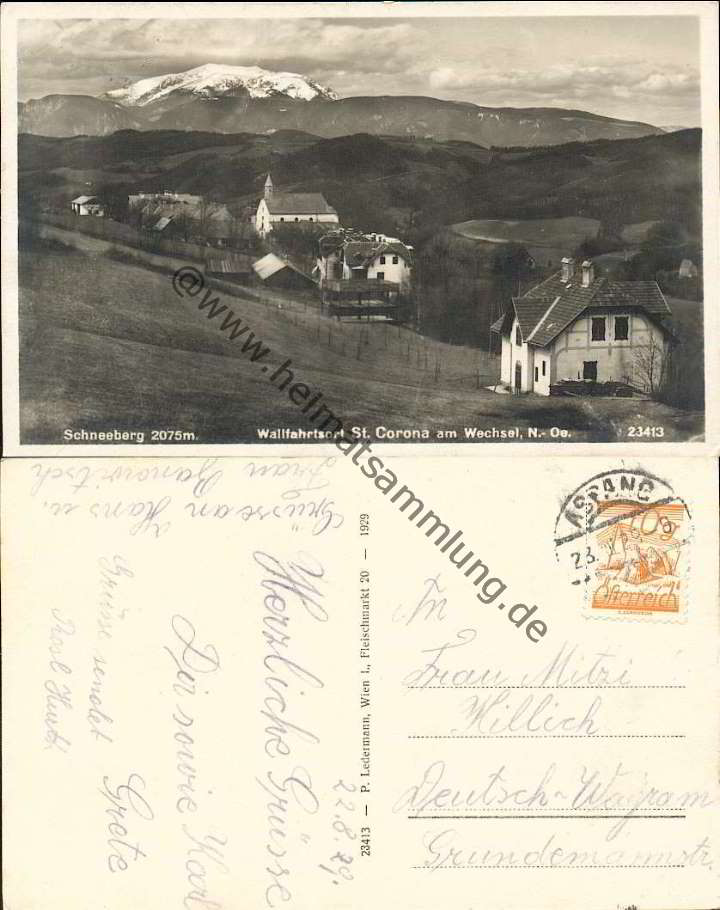 Schneeberg 2075m.
Wallfahrtsort St. Corona am Wechsel, N.-Oe.
23413
@www.heimatsammlung.de
Grüsse an Hans u.
Frau Janowitsch
22.8.29.
Herzliche Grüsse
Dir sowie Karl
Grete
Grüsse sendet
23413 — P. Ledermann, Wien I., Fleischmarkt 20 — 1929
ASPANG
23.
10g
Österreich
An
Frau Mitzi
Hillich
Deutsch-Wagram